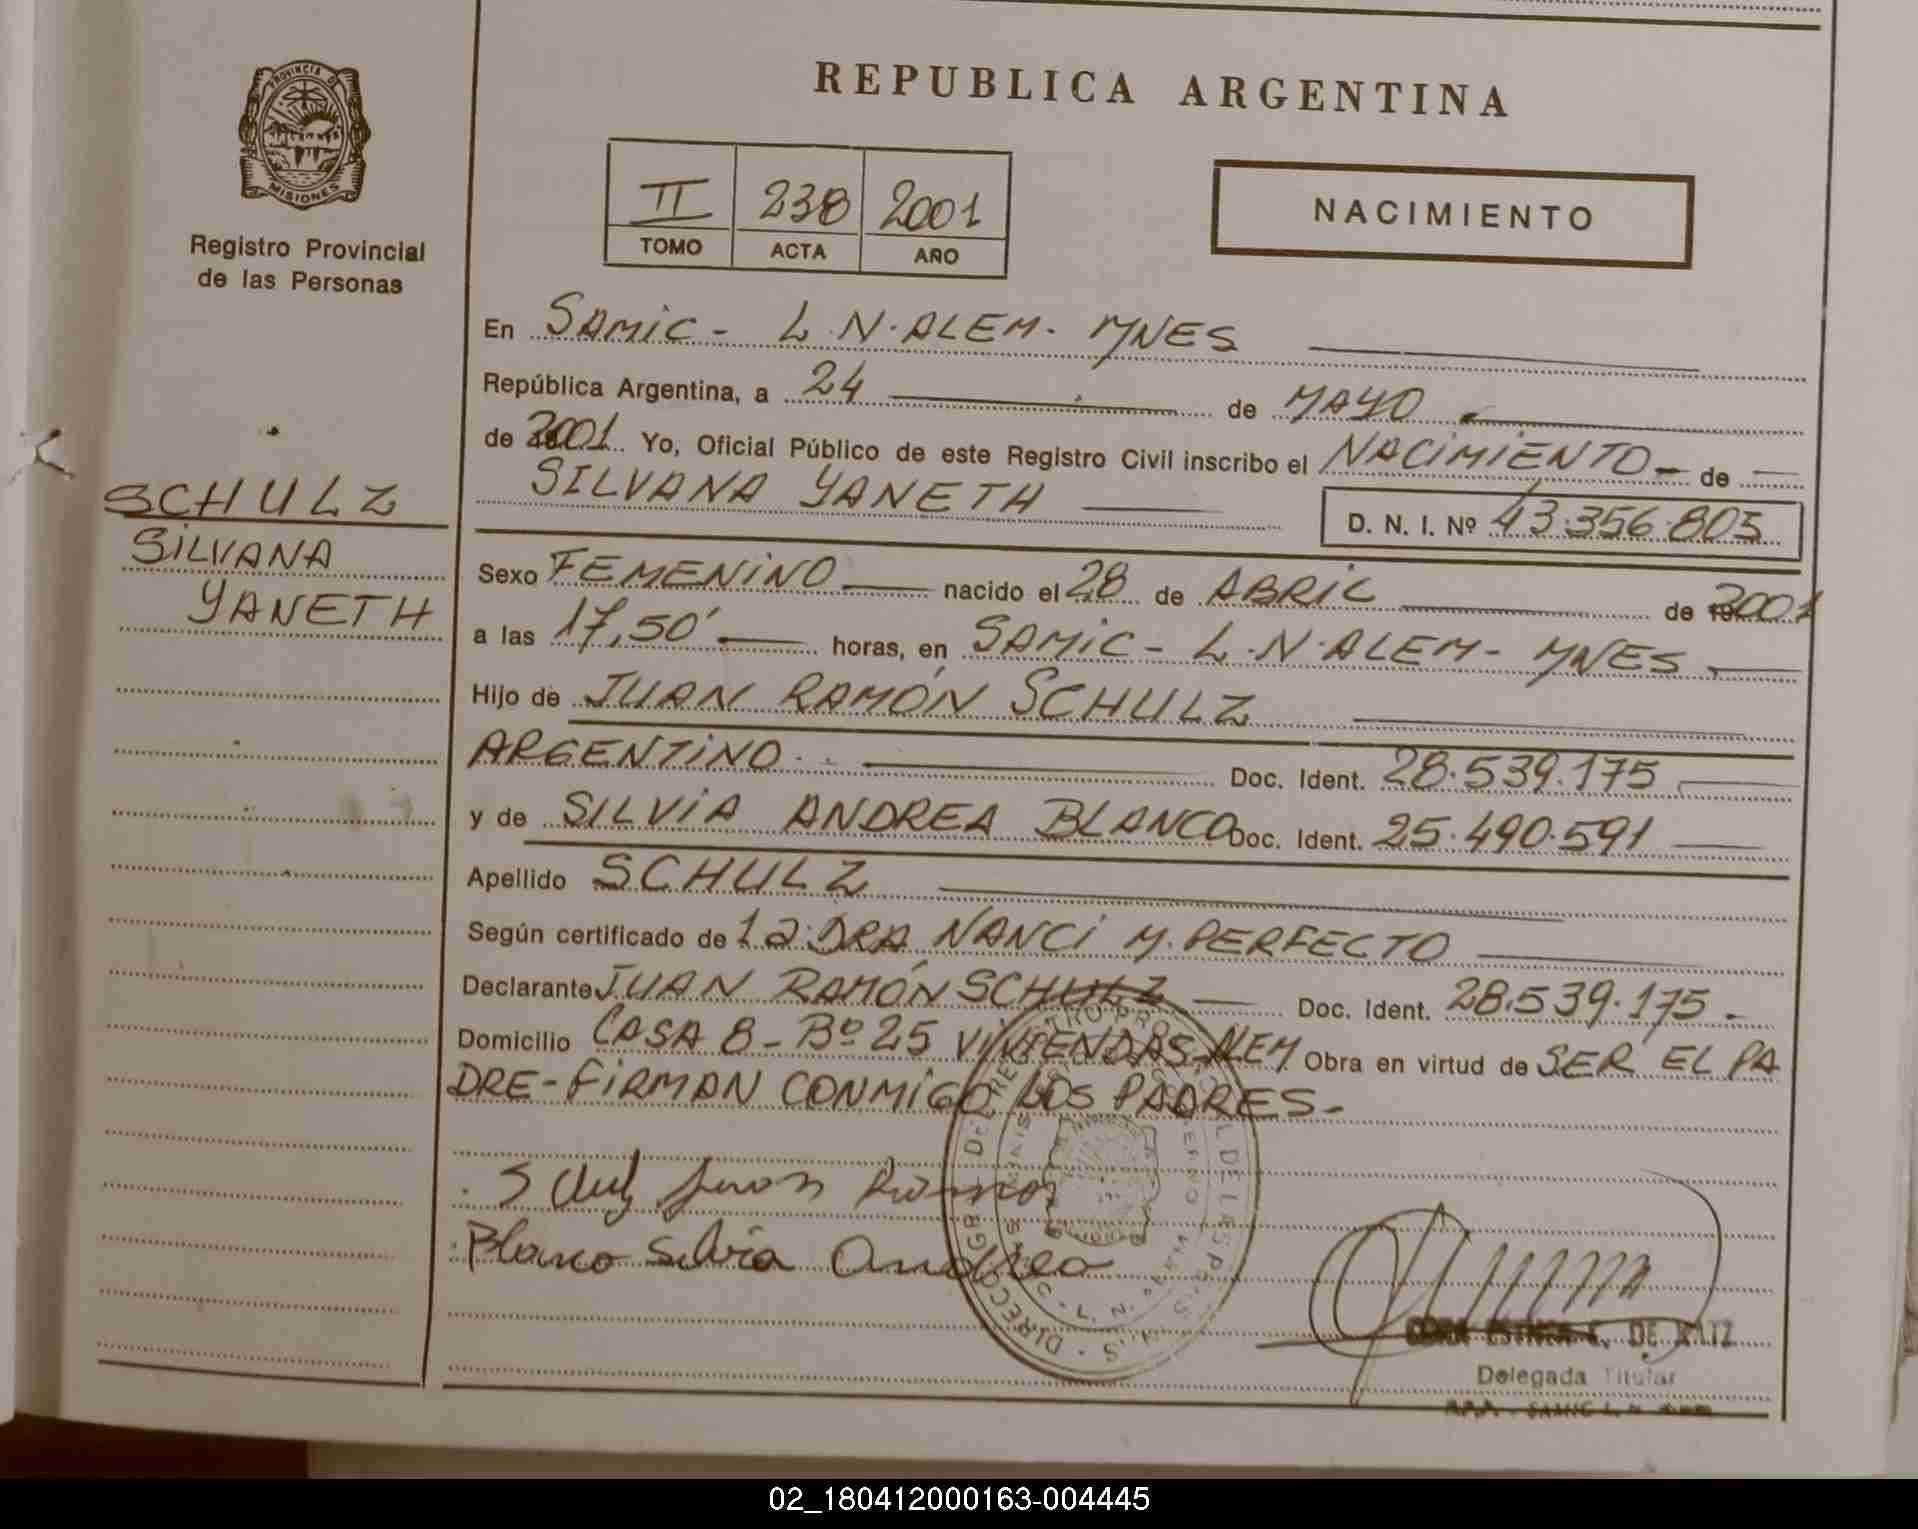 REPUBLICA ARGENTINA
PROVINCIA DE
MISIONES
Registro Provincial
de las Personas
II 238 2001
TOMO ACTA AÑO
NACIMIENTO
En SAMIC - L.N. ALEM - MNES
República Argentina, a 24 de MAYO
de 2001 Yo, Oficial Público de este Registro Civil inscribo el NACIMIENTO - de
SILVANA YANETH D. N. I. Nº 43.356.805
SCHULZ
SILVANA
YANETH
Sexo FEMENINO nacido el 28 de ABRIL de 2001
a las 17,50' horas, en SAMIC - L.N. ALEM - MNES
Hijo de JUAN RAMÓN SCHULZ
ARGENTINO Doc. Ident. 28.539.175
y de SILVIA ANDREA BLANCO Doc. Ident. 25.490.591
Apellido SCHULZ
Según certificado de la DRA NANCI M. PERFECTO
Declarante JUAN RAMÓN SCHULZ Doc. Ident. 28.539.175 -
Domicilio CASA 8 - Bº 25 VIVIENDAS - ALEM Obra en virtud de SER EL PA
DRE - FIRMAN CONMIGO LOS PADRES -
Juan Ramon
Blanco Silvia Andrea
DE
Delegada Titular
02_180412000163-004445